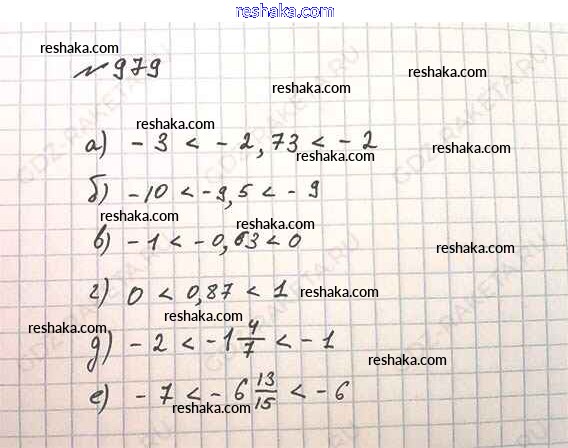 reshaka.com
reshaka.com
№ 979
reshaka.com
reshaka.com
reshaka.com
а) - 3 < - 2,73 < - 2
reshaka.com
б) - 10 < - 9,5 < - 9
reshaka.com
reshaka.com
в) - 1 < - 0,63 < 0
reshaka.com
г) 0 < 0,87 < 1 reshaka.com
reshaka.com
reshaka.com
д) - 2 < - 1 4/7 < - 1
reshaka.com
е) - 7 < - 6 13/15 < - 6
reshaka.com
GDZ-RAKETA.RU